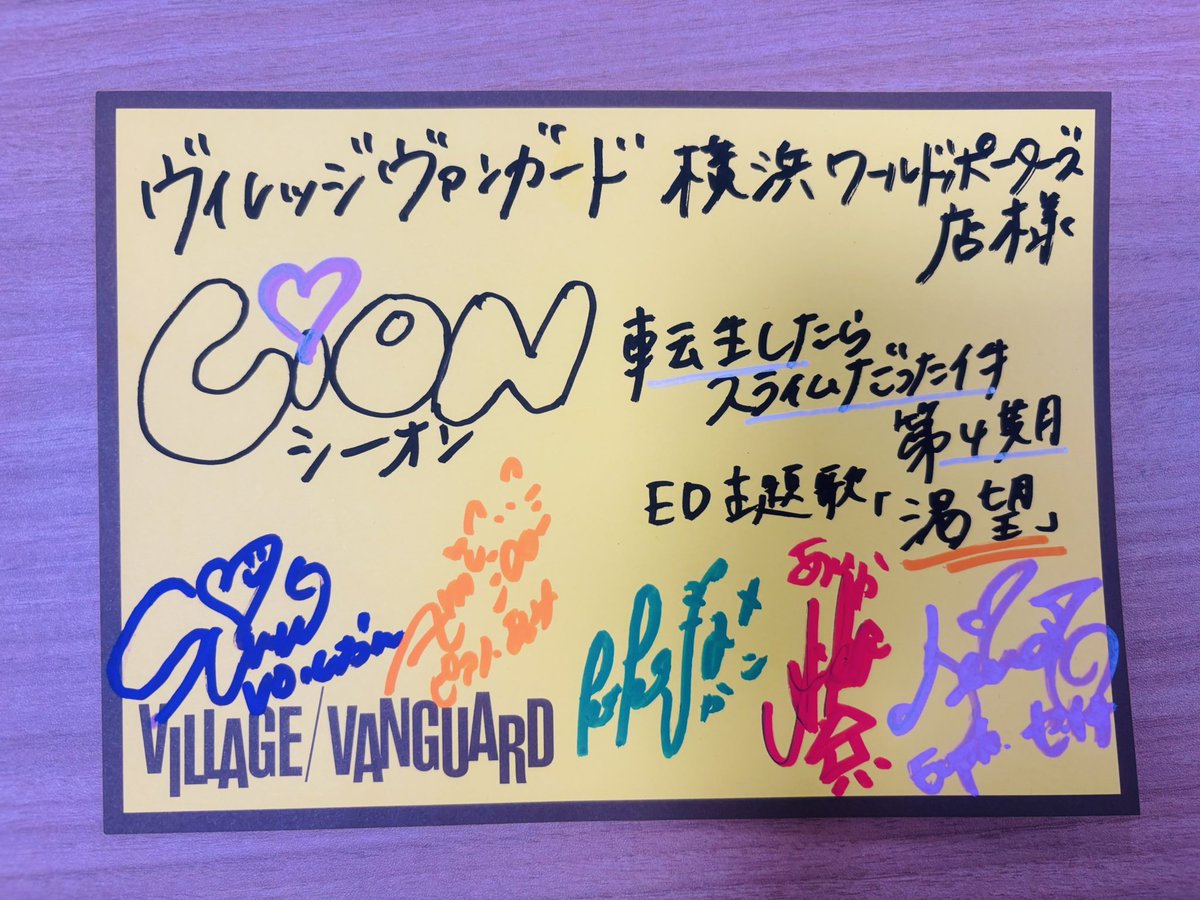 ヴィレッジヴァンガード 横浜ワールドポーターズ
店様
CiON
シーオン
転生したら
スライムだった件
第4期
ED主題歌「渇望」
VILLAGE/VANGUARD